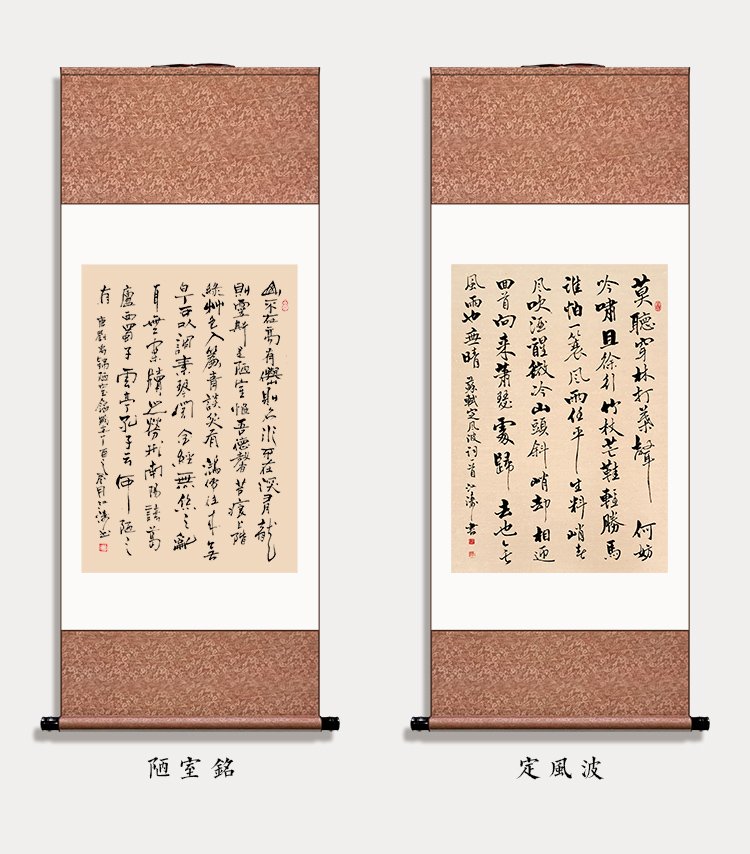 山不在高有僊則名水不在深有龍
則靈斯是陋室惟吾德馨苔痕上階
綠艸色入簾青談笑有鴻儒往來無
白丁可以調素琴閱金經無絲之亂
耳無案牘之勞形南陽諸葛
廬西蜀子雲亭孔子云何陋之
有 唐劉禹錫陋室銘
陋室銘
莫聽穿林打葉聲何妨
吟嘯且徐行竹杖芒鞋輕勝馬
誰怕一蓑風雨任平生料峭春
風吹酒醒微冷山頭斜照却相迎
回首向來蕭瑟處歸去也無
風雨也無晴 蘇軾定風波詞一首江濤書
定風波